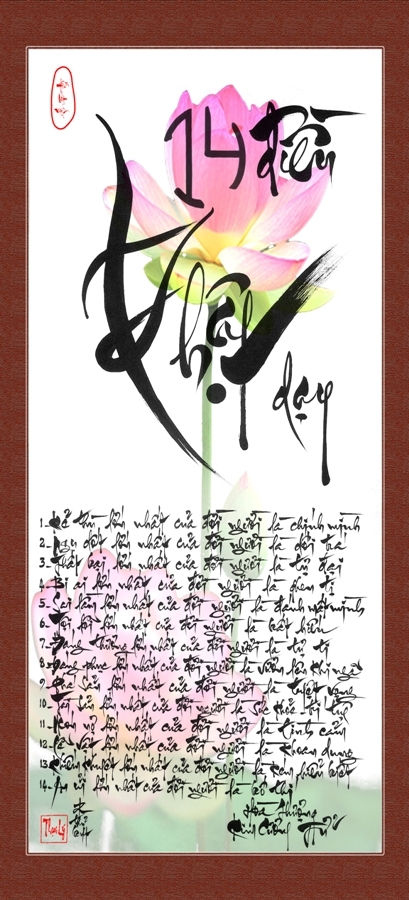 14 điều
Phật
dạy
1_ Kẻ thù lớn nhất của đời người là chính mình
2_ Ngu dốt lớn nhất của đời người là dối trá
3_ Thất bại lớn nhất của đời người là tự đại
4_ Bi ai lớn nhất của đời người là ghen tị
5_ Sai lầm lớn nhất của đời người là đánh mất mình
6_ Tội lỗi lớn nhất của đời người là bất hiếu
7_ Đáng thương lớn nhất của đời người là tự ti
8_ Đáng phục lớn nhất của đời người là vươn lên khi ngã
9_ Phá sản lớn nhất của đời người là tuyệt vọng
10_ Tài sản lớn nhất của đời người là sức khỏe trí tuệ
11_ Món nợ lớn nhất của đời người là tình cảm
12_ Lễ vật lớn nhất của đời người là khoan dung
13_ Khiếm khuyết lớn nhất của đời người là kém hiểu biết
14_ An ủi lớn nhất của đời người là bố thí
Hòa Thượng
Kim Cương Tử